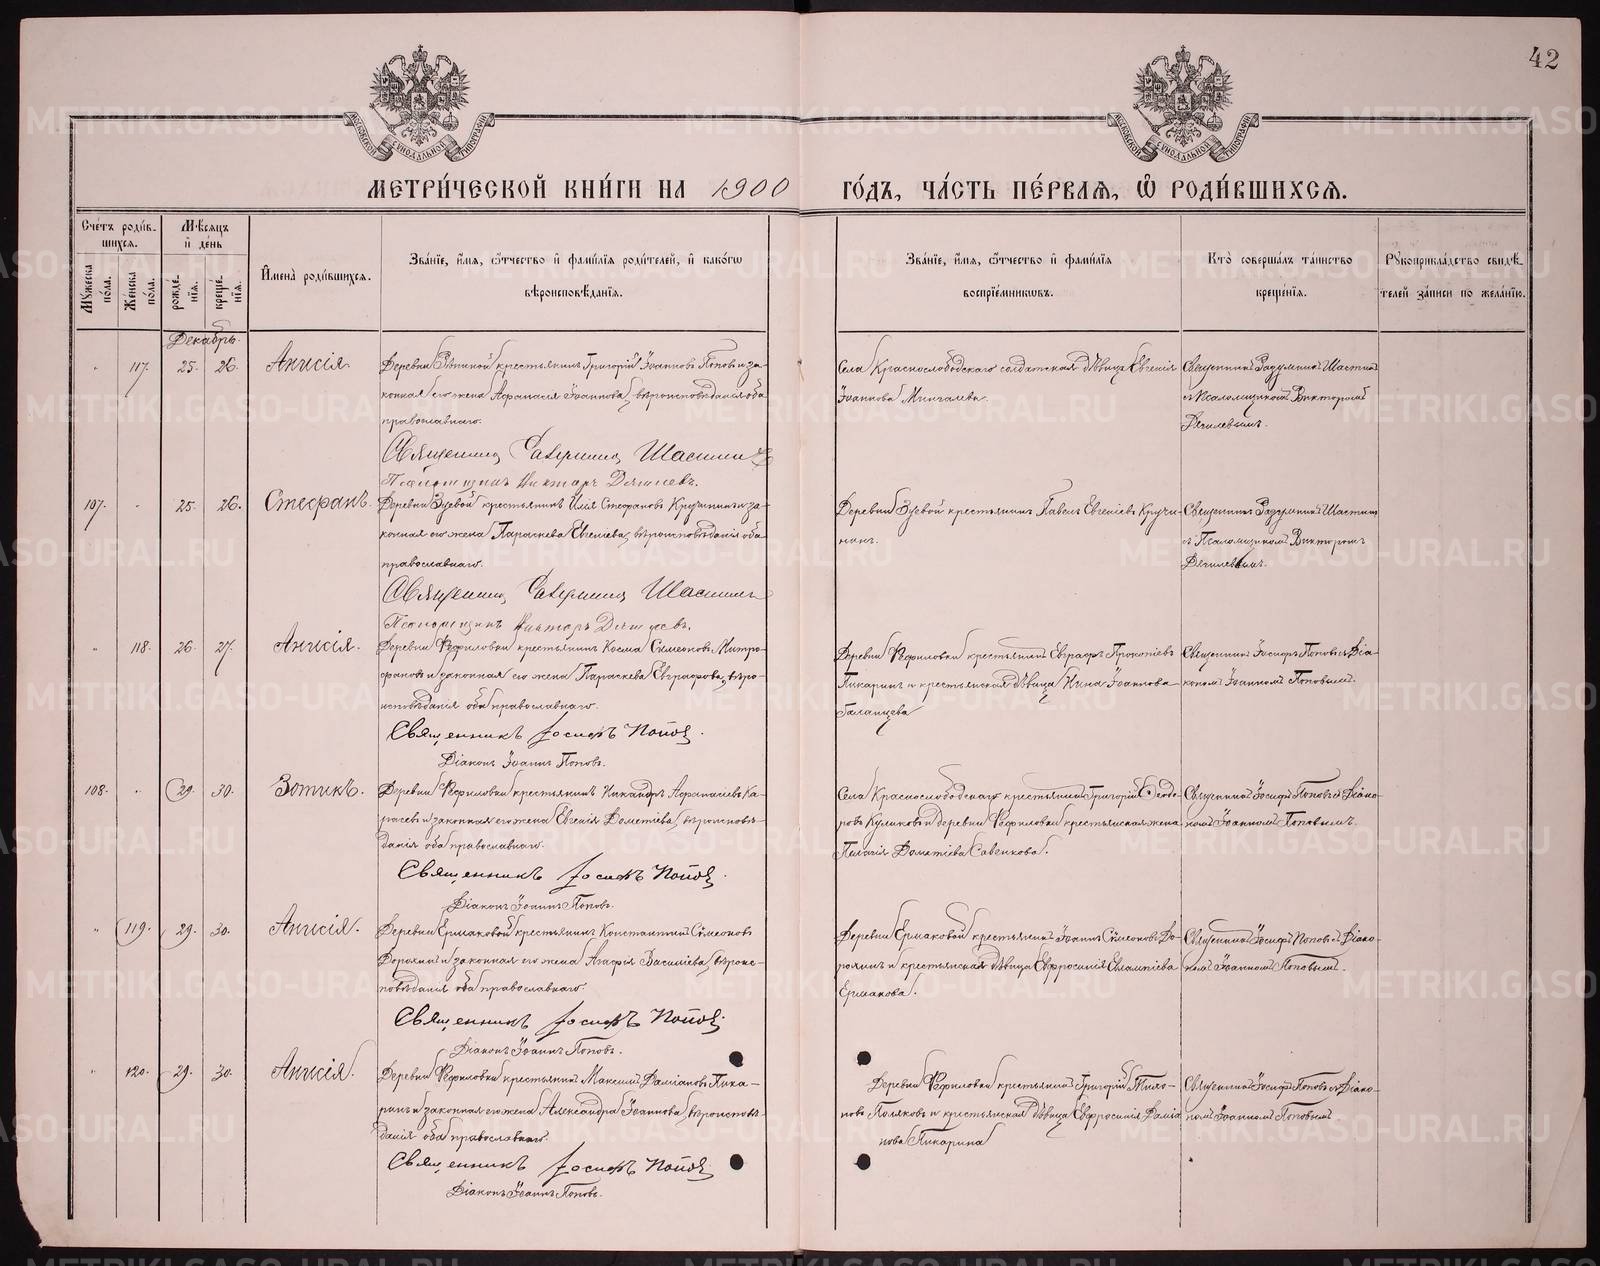 42
МОСКОВСКОЙ СѴНОДАЛЬНОЙ ТИПОГРАФІИ
МОСКОВСКОЙ СѴНОДАЛЬНОЙ ТИПОГРАФІИ
МЕТРИ́ЧЕСКОЙ КНИ́ГИ НА 1900
ГО́ДЪ, ЧА́СТЬ ПЕ́РВАЯ, Ѽ РОДИ́ВШИХСЯ.
Сче́тъ роди́в-
шихся.
Мѣ́сяцъ
и҆ де́нь
Му́жеска
по́ла.
Же́нска
по́ла.
рожде́-
нїя.
креще́-
нїя.
И҆мена̀ роди́вшихся.
Зва́нїе, и҆́мя, ѻ҆́тчество и҆ фами́лїя роди́телей, и҆ како́гѡ
вѣроисповѣ́данїя.
Зва́нїе, и҆́мя, ѻ҆́тчество и҆ фами́лїя
воспрїе́мникѡвъ.
Кто̀ соверша́лъ та́инство
креще́нїя.
Рꙋкоприкла́дство свидѣ́-
телей за́писи по жела́нїю.
Декабрь.
" 117. 25. 26. Анисія.
Деревни крестьянинъ Григорій Іоанновъ Поповъ и за-
конная его жена Аѳанасія Іоаннова, вѣроисповѣданія оба
православнаго.
Священникъ Шастинъ
Псаломщикъ Викторъ
Села Краснослободскаго солдатская дѣвица Евгенія
Іоаннова Мингалева.
Священникъ Шастинъ
съ Псаломщикомъ Викторомъ
107. " 25. 26. Стефанъ.
Деревни Зуевой крестьянинъ Илія Стефановъ Кручининъ и за-
конная его жена Параскева Евгеніева, вѣроисповѣданія оба
православнаго.
Священникъ Шастинъ
Псаломщикъ Викторъ
Деревни Зуевой крестьянинъ Павелъ Евгеніевъ Кручи-
нинъ.
Священникъ Шастинъ
съ Псаломщикомъ Викторомъ
" 118. 26. 27. Анисія.
Деревни Ѳефиловки крестьянинъ Косма Сѵмеоновъ Митро-
фановъ и законная его жена Параскева Евграфова, вѣро-
исповѣданія оба православнаго.
Священникъ Іосифъ Поповъ.
Діаконъ Іоаннъ Поповъ.
Деревни Ѳефиловки крестьянинъ Евграфъ Прокопіевъ
Пикаринъ и крестьянская дѣвица Нина Іоаннова
Галанцева
Священникъ Іосифъ Поповъ съ Діа-
кономъ Іоанномъ Поповымъ.
108. " 29. 30. Зотикъ.
Деревни Ѳефиловки крестьянинъ Никандръ Аѳанасіевъ Ка-
расевъ и законная его жена Евгенія Дометіева, вѣроисповѣ-
данія оба православнаго.
Священникъ Іосифъ Поповъ.
Діаконъ Іоаннъ Поповъ.
Села Краснослободскаго крестьянинъ Григорій Ѳеодо-
ровъ Куликовъ и деревни Ѳефиловки крестьянская жена
Пелагія Дометіева Савенкова.
Священникъ Іосифъ Поповъ съ Діако-
номъ Іоанномъ Поповымъ.
" 119. 29. 30. Анисія.
Деревни Ермаковой крестьянинъ Константинъ Сѵмеоновъ
Дорохинъ и законная его жена Агафія Василіева, вѣроис-
повѣданія оба православнаго.
Священникъ Іосифъ Поповъ.
Діаконъ Іоаннъ Поповъ.
Деревни Ермаковой крестьянинъ Іоаннъ Сѵмеоновъ До-
рохинъ и крестьянская дѣвица Евфросинія Евлампіева
Ермакова.
Священникъ Іосифъ Поповъ съ Діако-
номъ Іоанномъ Поповымъ.
" 120. 29. 30. Анисія.
Деревни Ѳефиловки крестьянинъ Максимъ Даміановъ Пика-
ринъ и законная его жена Александра Іоаннова, вѣроисповѣ-
данія оба православнаго.
Священникъ Іосифъ Поповъ
Діаконъ Іоаннъ Поповъ.
Деревни Ѳефиловки крестьянинъ Григорій Тихо-
новъ Поляковъ и крестьянская дѣвица Евфросинія Даміа
нова Пикарина
Священникъ Іосифъ Поповъ съ Діако-
номъ Іоанномъ Поповымъ
METRIKI.GASO-URAL.RU